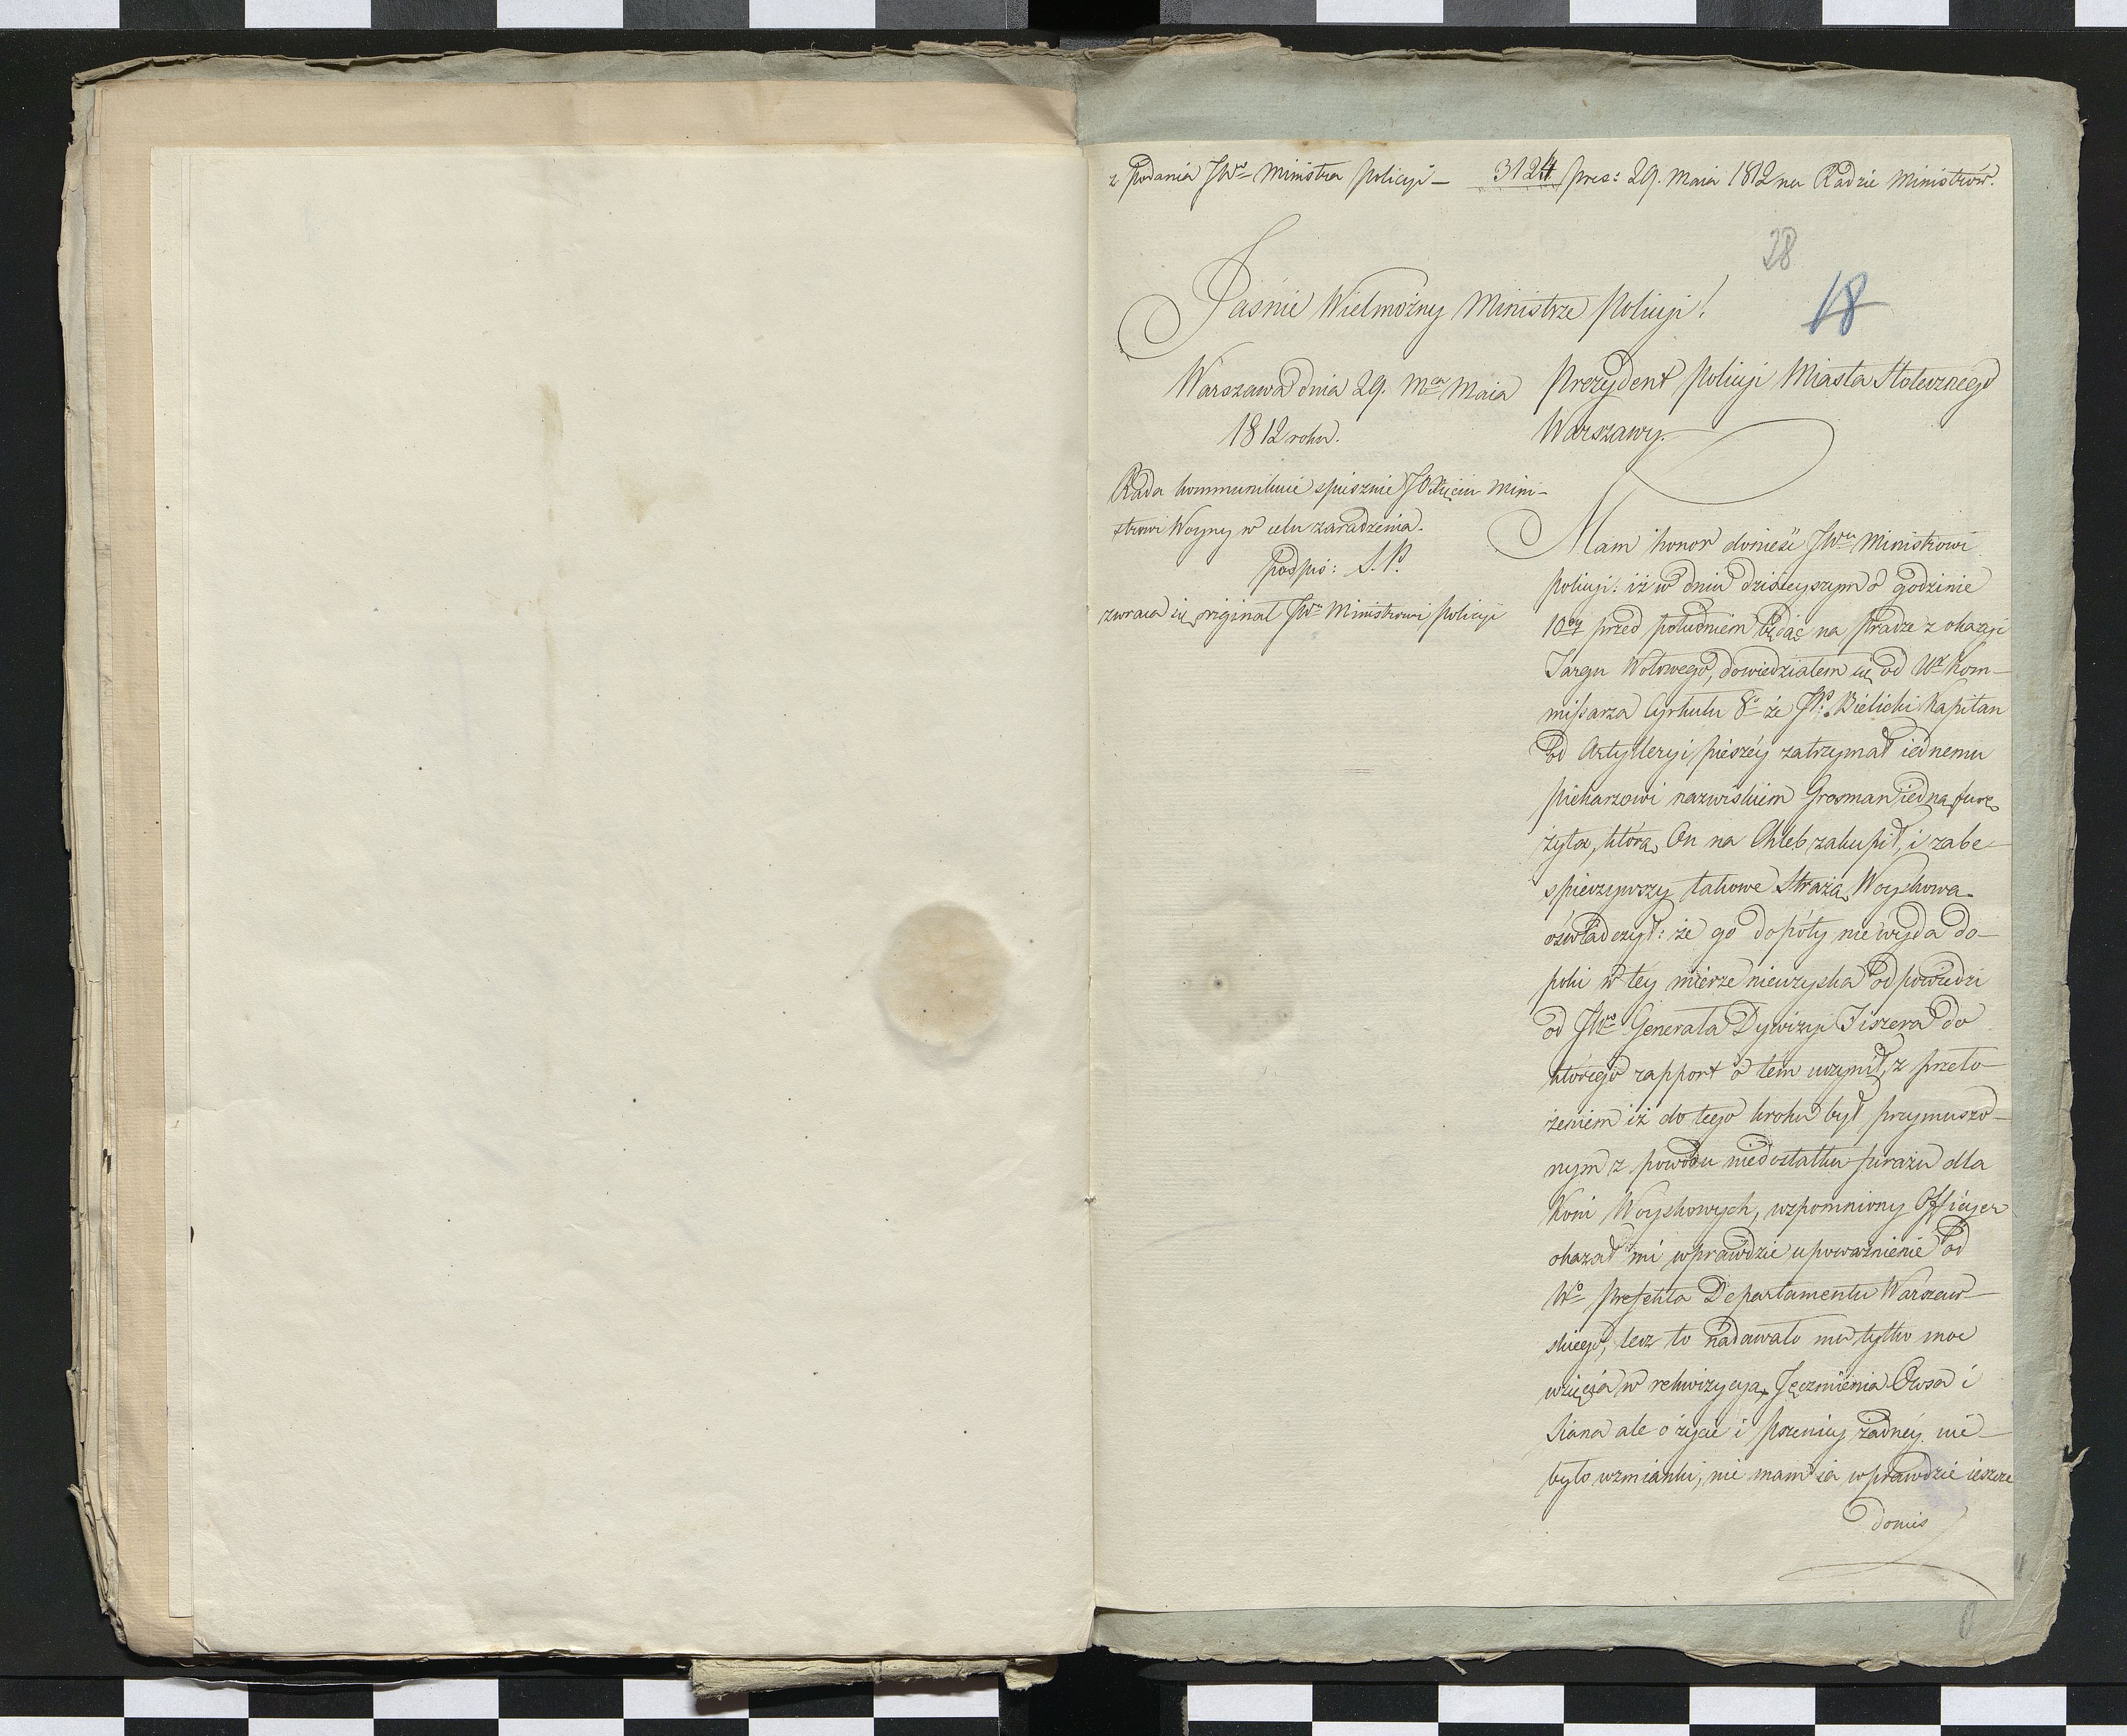 z podania JWo Ministra Policyi — 3124 pres: 29. Maia 1812 na Radzie Ministrów.
28
18
Jaśnie Wielmożny Ministrze Policyi!
Warszawa dnia 29. Mca Maia
1812 roku.
Prezydent Policyi Miasta Stołecznego
Warszawy.
Rada kommunikuie spiesznie JO Xięciu Mini-
strowi Woyny w celu zaradzenia.
podpis: S. P.
zwraca się originał JWu Ministrowi Policyi
Mam honor donieść JWu Ministrowi
Policyi: iż w dniu dzisieyszym o godzinie
10ey przed południem będąc na Pradze z okazyi
Targu Wołowego, dowiedziałem się od Wo Kom-
missarza Cyrkułu 8o że JP. Bielicki Kapitan
od Artylleryi pieszéy zatrzymał iednemu
Piekarzowi nazwiskiem Grosman iedną furę
żyta, którą On na Chleb zakupił, i zabe-
spieczywszy takowe Strażą Woyskową
oświadczył: że go dopóty nie wyda do-
poki w tey mierze nieuzyska odpowiedzi
od JWo Generała Dywizyi Fiszera do
którego rapport o tém uczynił, z przeło-
żeniem iż do tego kroku był przymuszo-
nym z powodu niedostatku furażu dla
Koni Woyskowych, wzpomniony Officyer
okazał mi wprawdzie upoważnienie od
Wo Prefekta Departamentu Warszaw-
skiego, lecz to nadawało mu tylko moc
wzięcia w rekwizycyą Jęczmienia Owsa i
Siana ale o życie i Pszenicy żadnéy nie-
było wzmianki, nie mam ia wprawdzie ieszcze
donies